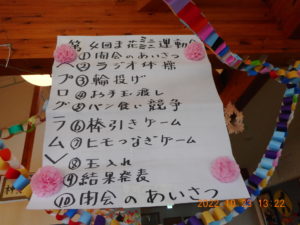 第4回まミニ運動
プログラム
①開会のあいさつ
②ラジオ体操
③輪投げ
④お手玉渡し
⑤パン食い競争
⑥棒引きゲーム
⑦ヒモつなぎゲーム
⑧玉入れ
⑨結果発表
⑩閉会のあいさつ
2022.10.23 13:22